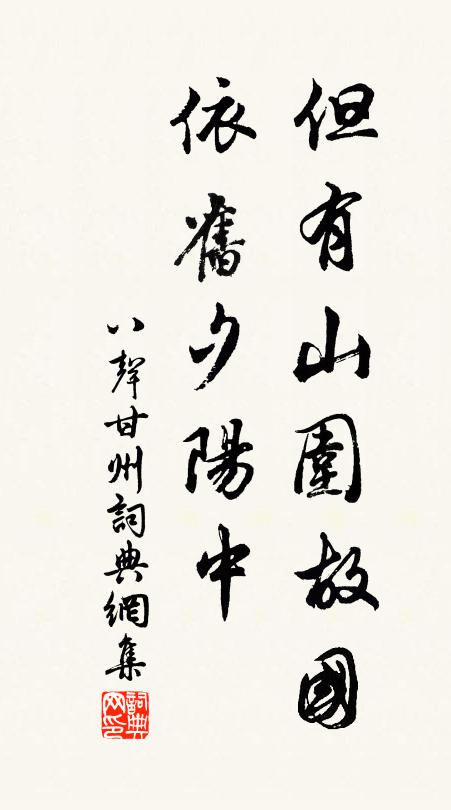 但有山圍故國
依舊夕陽中
八聲甘州詞典網集
詞典
网印